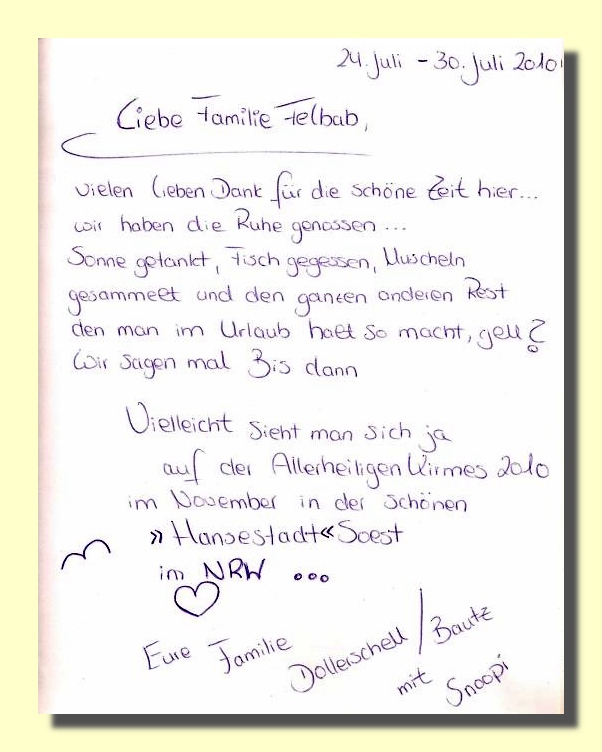 24. Juli - 30. Juli 2010
Liebe Familie Felbab,
vielen lieben Dank für die schöne Zeit hier...
wir haben die Ruhe genossen ...
Sonne getankt, Fisch gegessen, Muscheln
gesammelt und den ganzen anderen Rest
den man im Urlaub halt so macht, gell?
Wir sagen mal Bis dann
Vielleicht sieht man sich ja
auf der Allerheiligen Kirmes 2010
im November in der schönen
»Hansestadt« Soest
im NRW ...
Eure Familie Dollerschell / Bautz
mit Snoopi